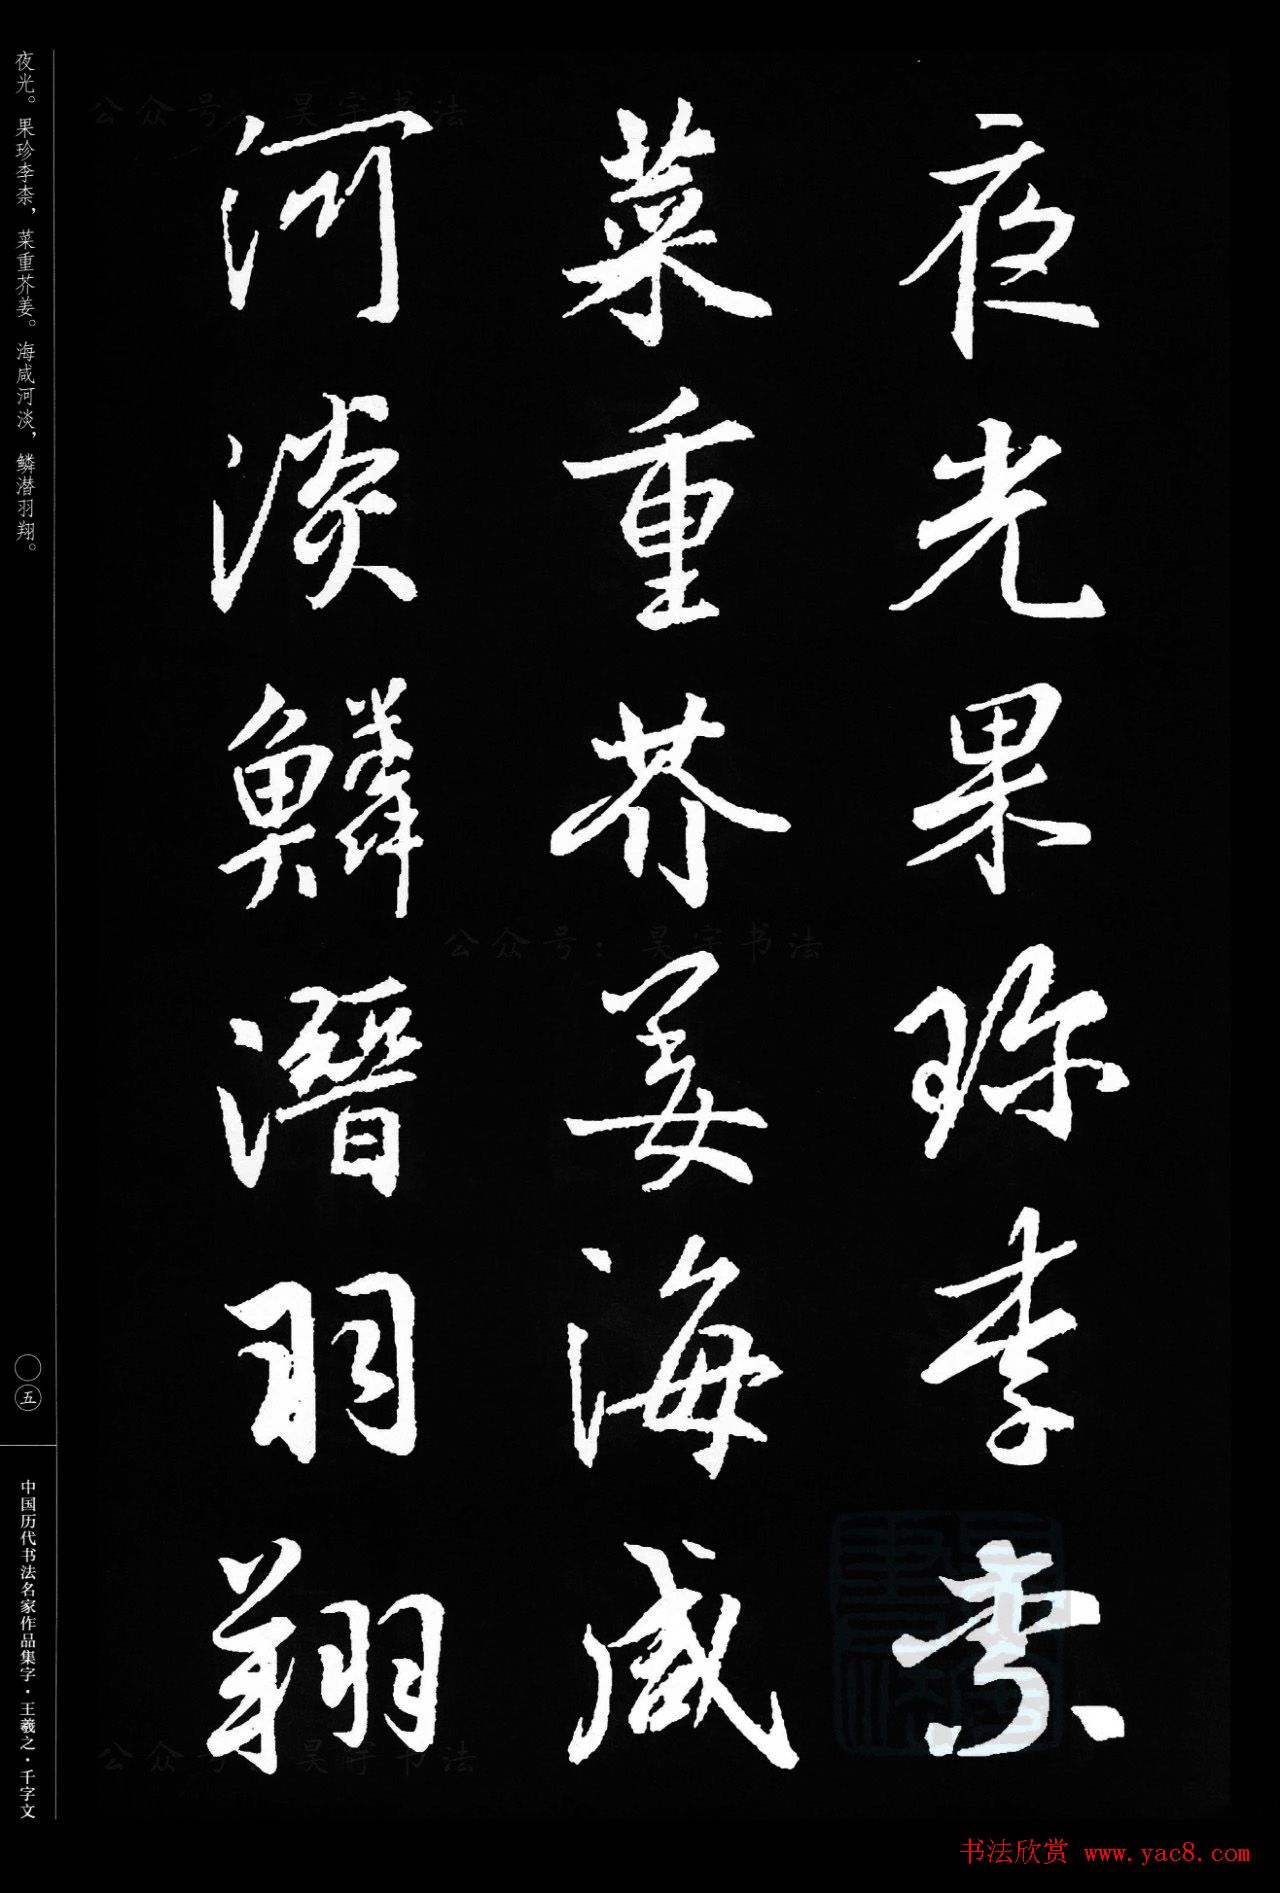 夜光果珍李柰
菜重芥姜海咸
河淡鳞潜羽翔
夜光。果珍李柰，菜重芥姜。海咸河淡，鳞潜羽翔。
〇五
中国历代书法名家作品集字·王羲之·千字文
公众号：昊宇书法
公众号：昊宇书法
公众号：昊宇书法
书法欣赏 www.yac8.com